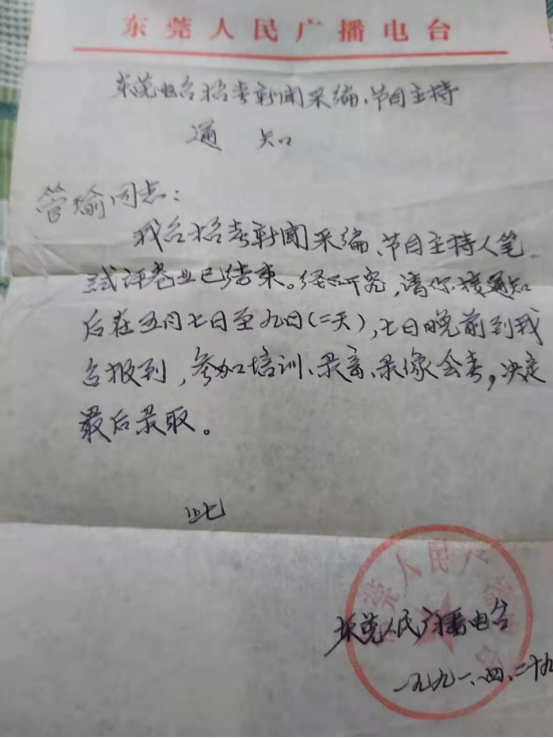 东莞人民广播电台
东莞电台招考新闻采编、节目主持
通知
管瑜同志：
我台招考新闻采编、节目主持人笔
试评卷业已结束。经研究，请你接通知
后在五月七日至九日(二天)，七日晚前到我
台报到，参加培训、录音、录像会考，决定
最后录取。
此
东莞人民广播电台
一九九一.四.二十九